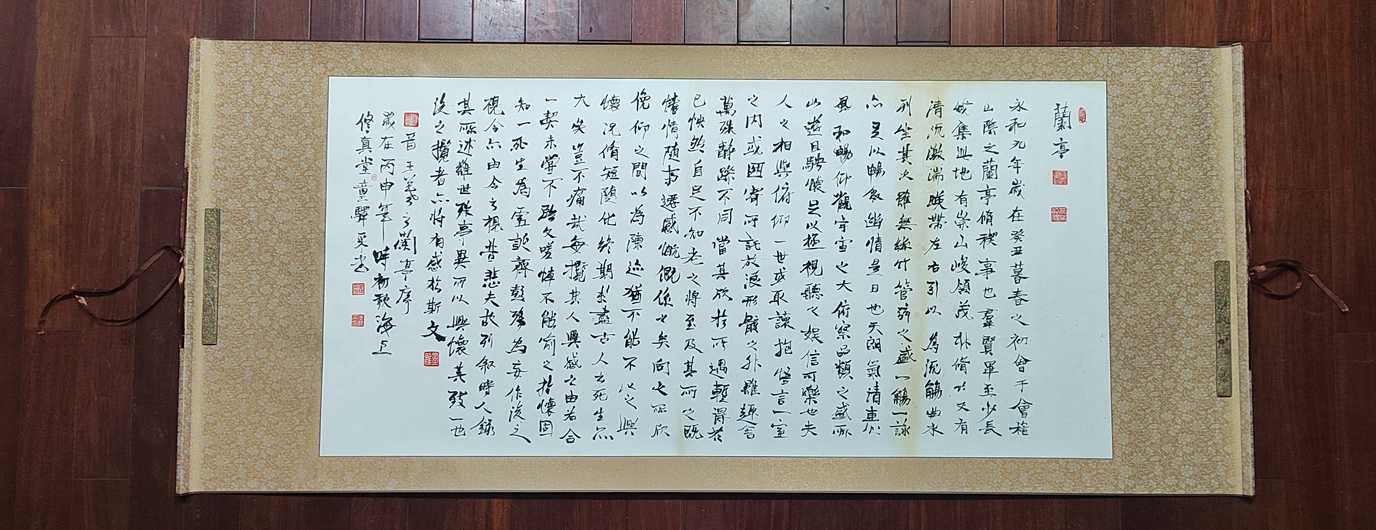 蘭亭
永和九年歲在癸丑暮春之初會于會稽
山陰之蘭亭脩稧事也羣賢畢至少長
咸集此地有崇山峻領茂林脩竹又有
清流激湍映帶左右引以為流觴曲水
列坐其次雖無絲竹管弦之盛一觴一詠
亦足以暢敘幽情是日也天朗氣清惠
風和暢仰觀宇宙之大俯察品類之盛所
以遊目騁懷足以極視聽之娛信可樂也夫
人之相與俯仰一世或取諸抱悟言一室
之內或因寄所託放浪形骸之外雖趣舍
萬殊靜躁不同當其欣於所遇輒得於
己怏然自足不知老之將至及其所之既
惓情隨事遷感慨係之矣向之所欣
俛仰之間以為陳迹猶不能不以之興
懷況脩短隨化終期於盡古人云死生亦
大矣豈不痛哉每攬昔人興感之由若合
一契未嘗不臨文嗟悼不能喻之於懷固
知一死生為虛誕齊彭殤為妄作後之
視今亦由今之視昔悲夫故列敘時人錄
其所述雖世殊事異所以興懷其致一也
後之攬者亦將有感於斯文
晉王羲之蘭亭序
歲在丙申年時初秋海上
修真堂